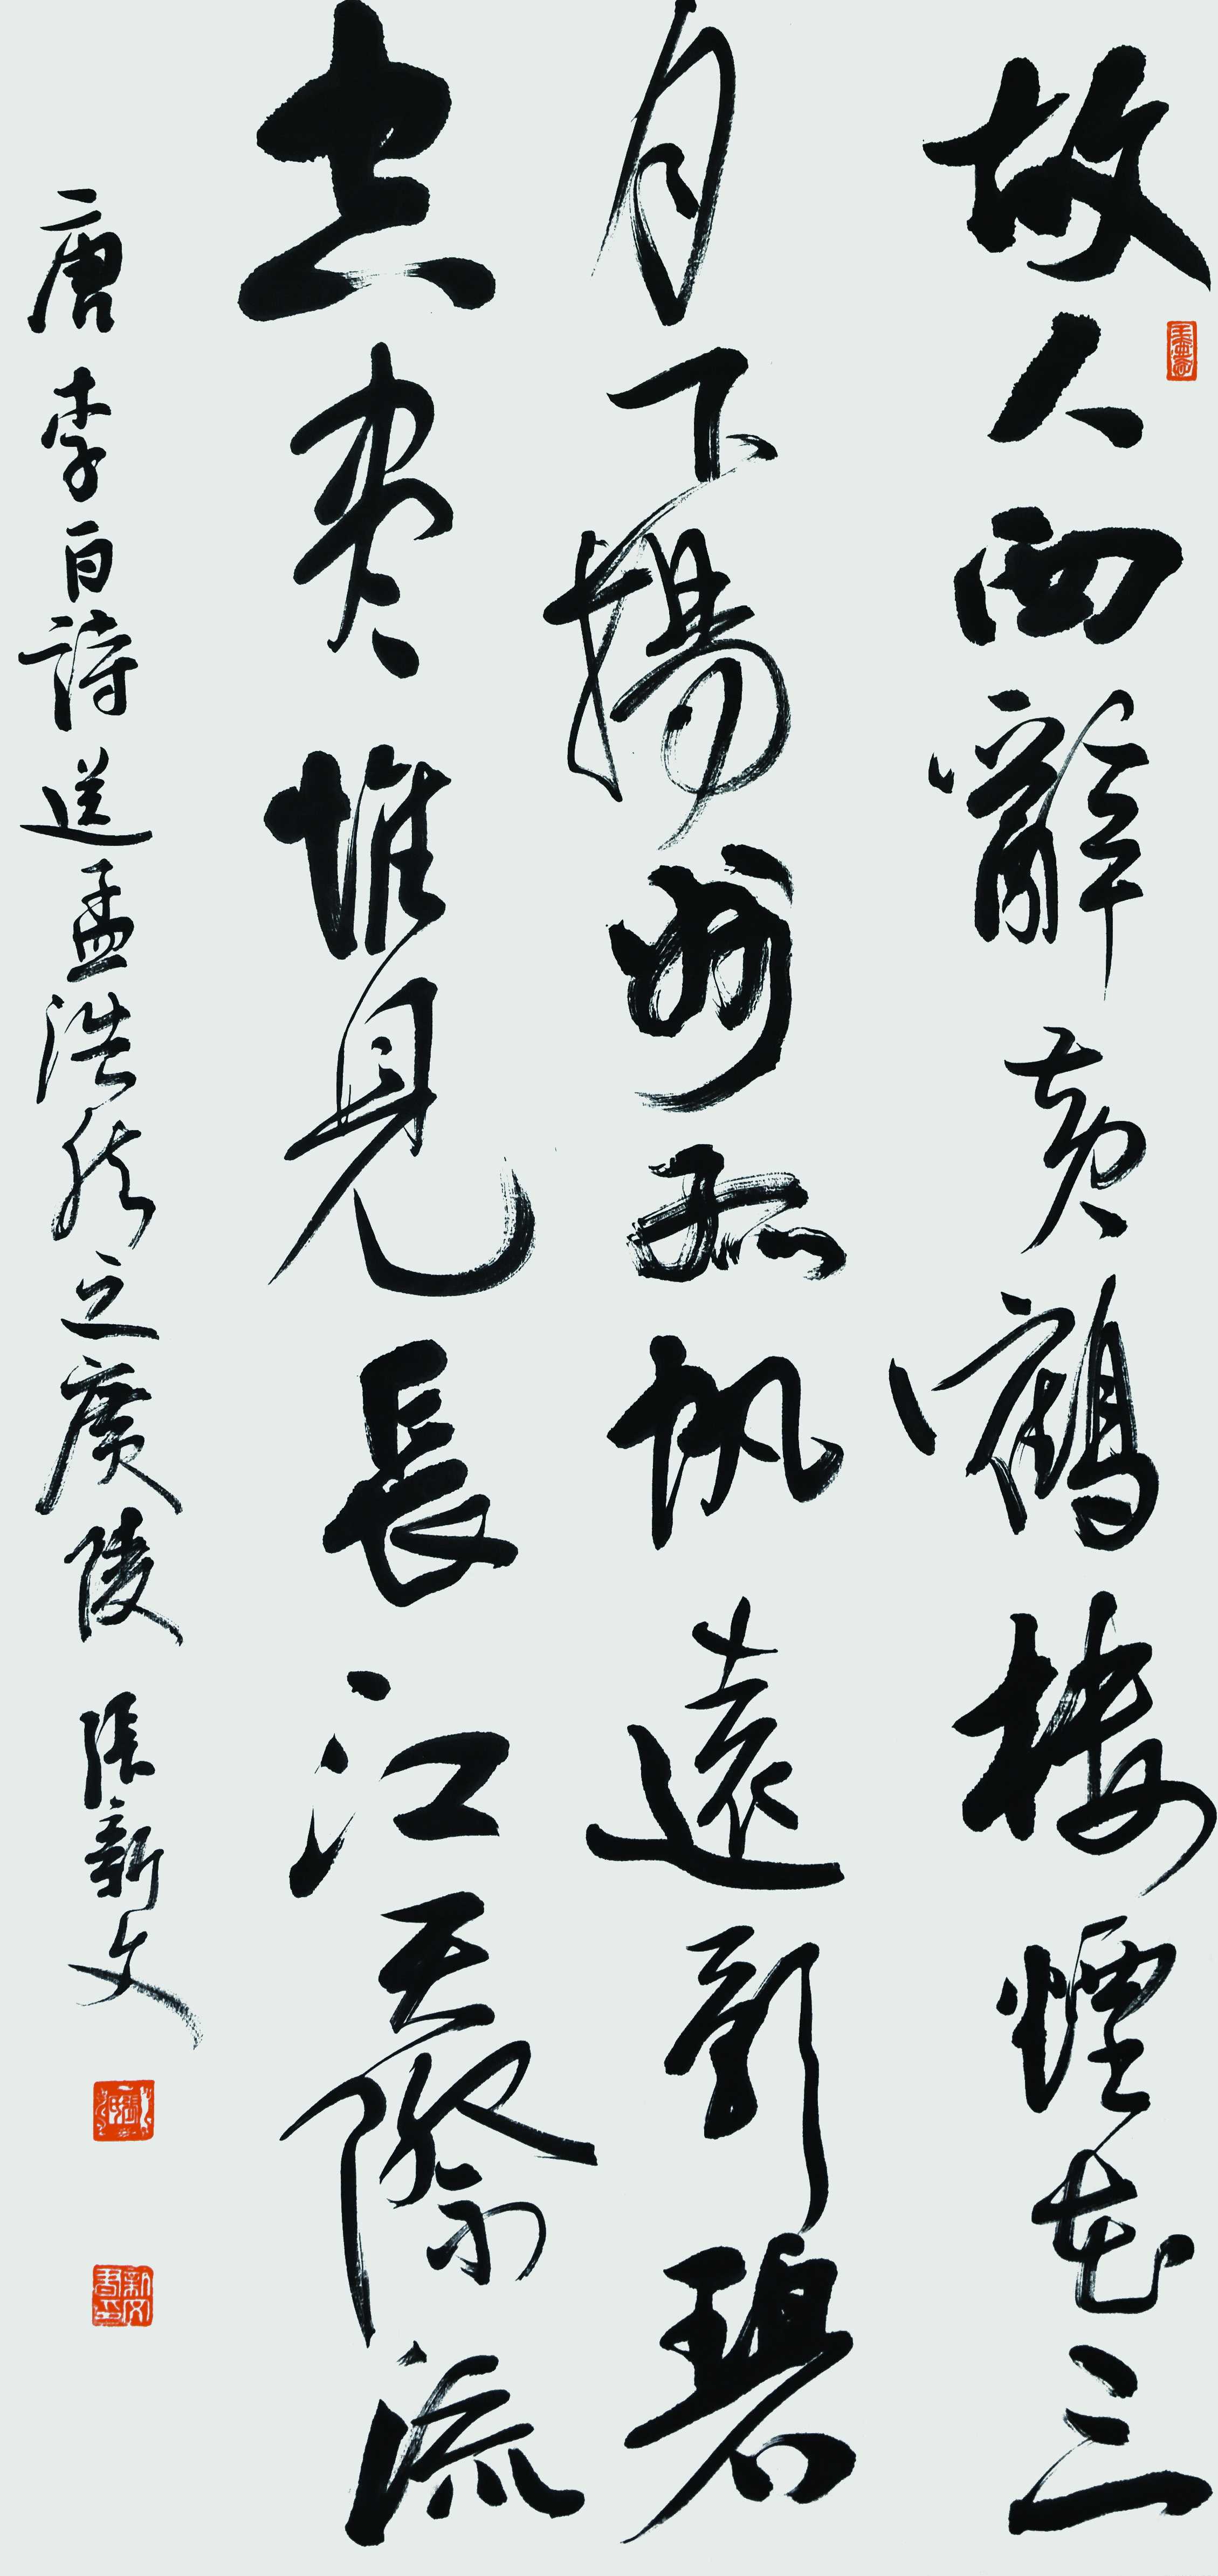 故人西辭黃鶴樓煙花三
月下揚州孤帆遠影碧
空盡惟見長江天際流
唐李白詩送孟浩然之廣陵 張新文